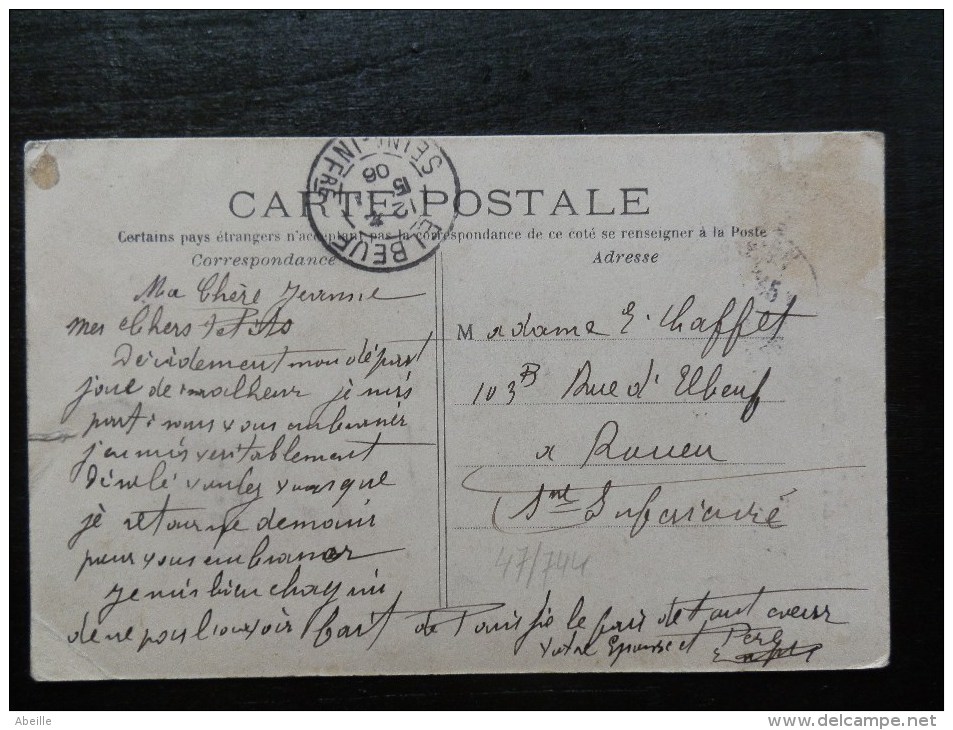 CARTE POSTALE
Certains pays étrangers n'acceptant pas la correspondance de ce coté se renseigner à la Poste
Correspondance
Adresse
ELBEUF
SEINE-INFRE
15
12
06
Ma Chère
mes Chers Petits
Décidement mon départ
joue de malheur je suis
parti sans vous embrasser
j'en suis veritablement
désolé voulez vous que
je retourne demain
pour vous embrasser
Je suis bien chagrin
de ne pas l'avoir fait de Paris je le fais de tout coeur
Votre Epoux et Pere
Madame E. Chaffet
103B Rue d'Elbeuf
a Rouen
Sne Inferieure
47/744
Abeille
www.delcampe.net